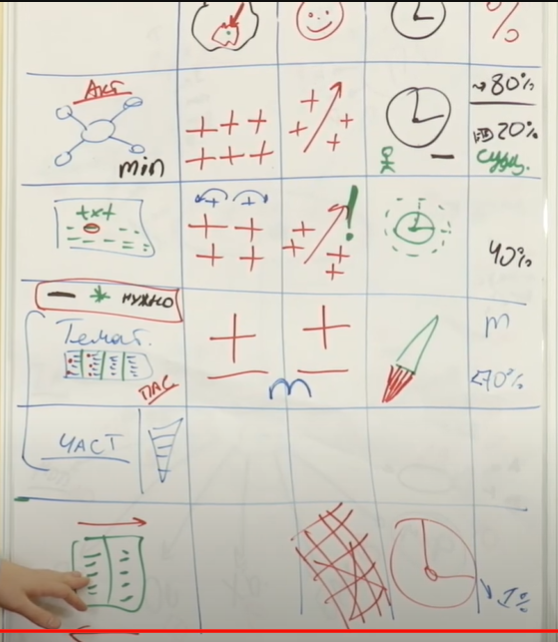 %
АКТ
min
→80%
20%
сущ.
txt
!
40%
— * нужно
Темат.
m
<70%
ПАС
m
ЧАСТ
1%